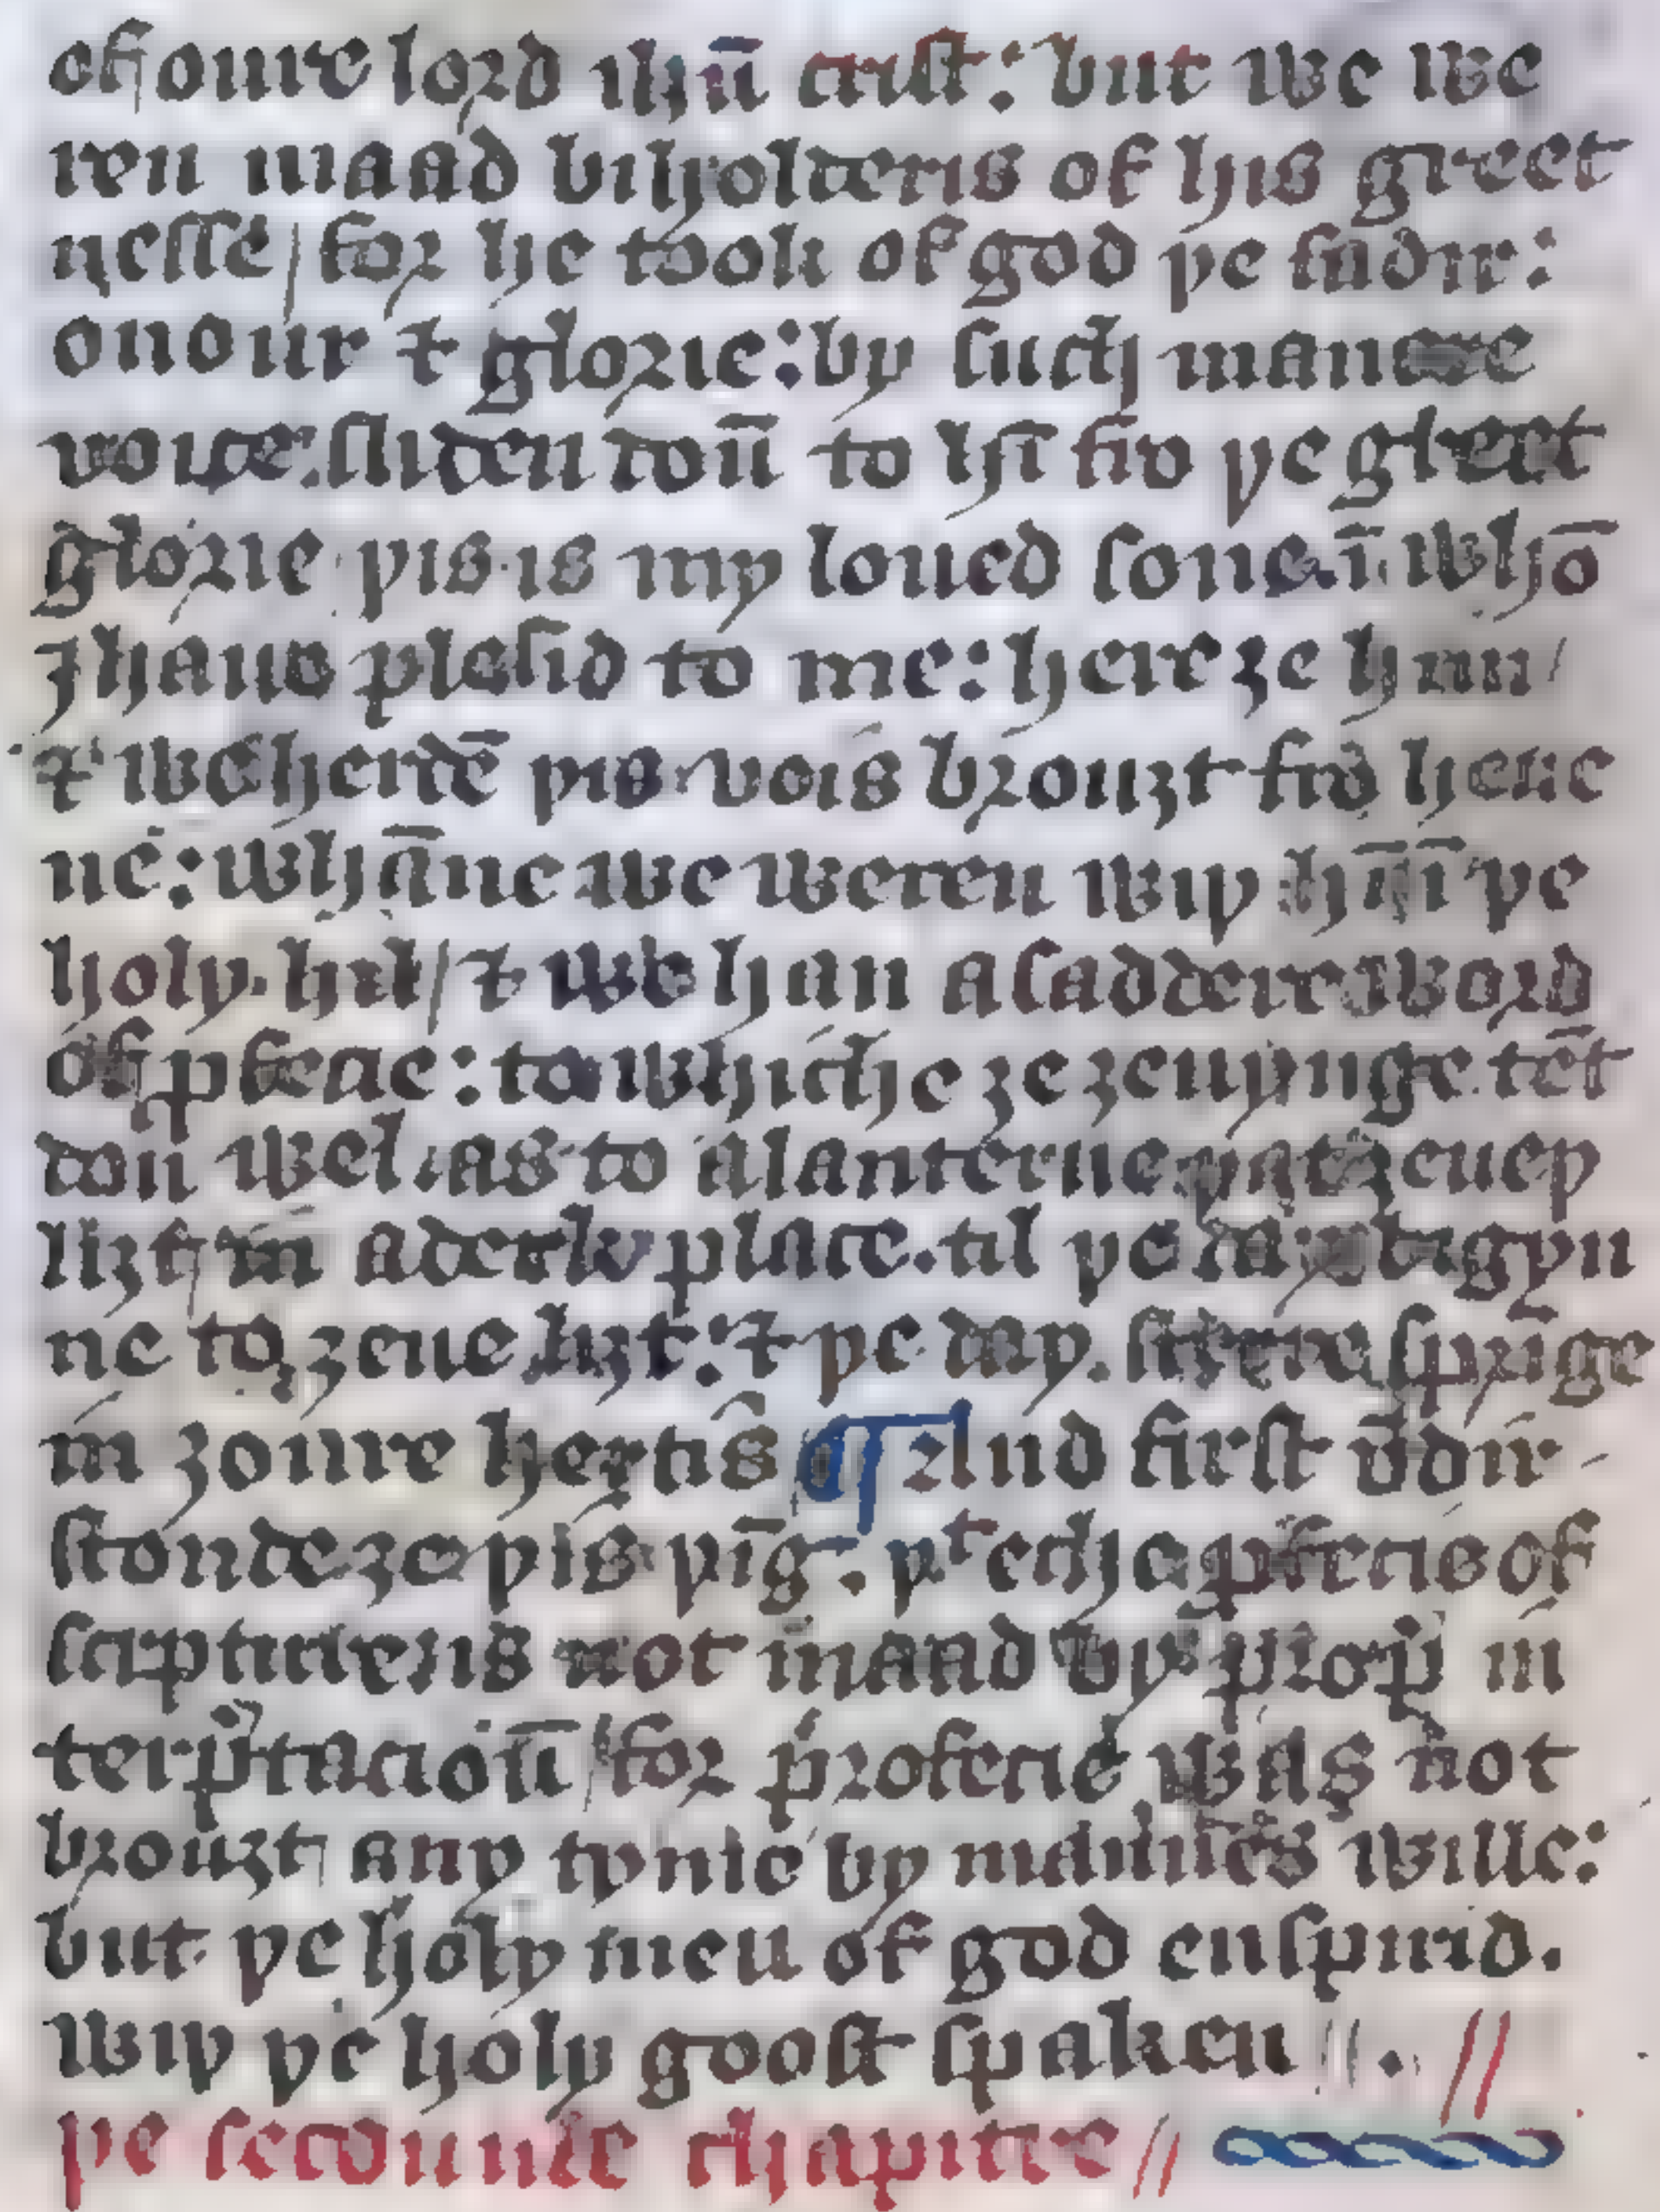 of oure lord ihū crist: but we we
ren maad biholderis of his greet
nesse / for he took of god þe fadir:
onour ⁊ glorie: by such manere
voice. sliden doū to hī fro þe greet
glorie þis is my loued sone. ī whō
I haue plesid to me: here ȝe hym /
⁊ we herdē þis vois brouȝt fro heue
ne: whāne we weren wiþ hī ī þe
holy hil / ⁊ we han a saddere word
of ꝓfecie: to whiche ȝe ȝeuynge tēt
don wel. as to a lanterne þat ȝeueþ
liȝt in a derk place. til þe day bigyn
ne to ȝeue liȝt: ⁊ þe day sterre sprīge
in ȝoure hertis ¶ And first v̄dir
stonde ȝe þis þīg. þᵗ eche ꝓfecie of
scripture is not maad by propꝛ in
terp̄tacioū / for profecie was not
brouȝt any tyme by mānes wille:
but þe holy men of god enspirid.
wiþ þe holy goost spaken // . //
þe secounde chapitre //